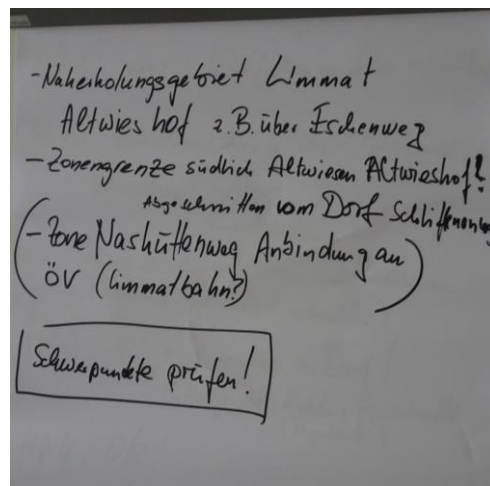 - Naherholungsgebiet Limmat
Altwieshof z.B. über Eschenweg
- Zonengrenze südlich Altwiesen Altwieshof?
Abgeschnitten vom Dorf
- Zone Nashüttenweg Anbindung an
ÖV (Limmatbahn?)
Schwerpunkte prüfen!